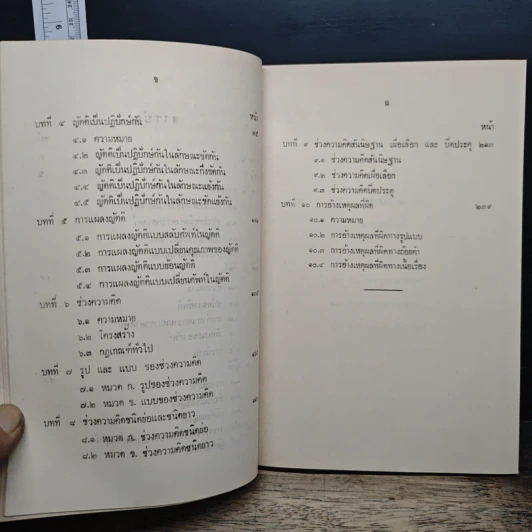 ข
หน้า
บทที่ ๔ ญัตติเป็นปฏิปักษ์กัน
๔.๑ ความหมาย
๔.๒ ญัตติเป็นปฏิปักษ์กันในลักษณะขัดกัน
๔.๓ ญัตติเป็นปฏิปักษ์กันในลักษณะกึ่งขัดกัน
๔.๔ ญัตติเป็นปฏิปักษ์กันในลักษณะแย้งกัน
๔.๕ ญัตติเป็นปฏิปักษ์กันในลักษณะขัดแย้งกัน
บทที่ ๕ การแผลงญัตติ
๕.๑ การแผลงญัตติแบบสลับศัพท์ในญัตติ
๕.๒ การแผลงญัตติแบบเปลี่ยนคุณภาพของญัตติ
๕.๓ การแผลงญัตติแบบย้อนญัตติ
๕.๔ การแผลงญัตติแบบเปลี่ยนศัพท์ในญัตติ
บทที่ ๖ ช่วงความคิด
๖.๑ ความหมาย
๖.๒ โครงสร้าง
๖.๓ กฎเกณฑ์ทั่วไป
บทที่ ๗ รูป และ แบบ ของช่วงความคิด
๗.๑ หมวด ก. รูปของช่วงความคิด
๗.๒ หมวด ข. แบบของช่วงความคิด
บทที่ ๘ ช่วงความคิดชนิดย่อและชนิดยาว
๘.๑ หมวด ก. ช่วงความคิดชนิดย่อ
๘.๒ หมวด ข. ช่วงความคิดชนิดยาว
หน้า
บทที่ ๙ ช่วงความคิดสันนิษฐาน เผื่อเลือก และ ปิดประตู ๒๑๓
๙.๑ ช่วงความคิดสันนิษฐาน
๙.๒ ช่วงความคิดเผื่อเลือก
๙.๓ ช่วงความคิดปิดประตู
บทที่ ๑๐ การอ้างเหตุผลที่ผิด ๒๓๙
๑๐.๑ ความหมาย
๑๐.๒ การอ้างเหตุผลที่ผิดทางรูปแบบ
๑๐.๓ การอ้างเหตุผลที่ผิดทางถ้อยคำ
๑๐.๔ การอ้างเหตุผลที่ผิดทางเนื้อเรื่อง